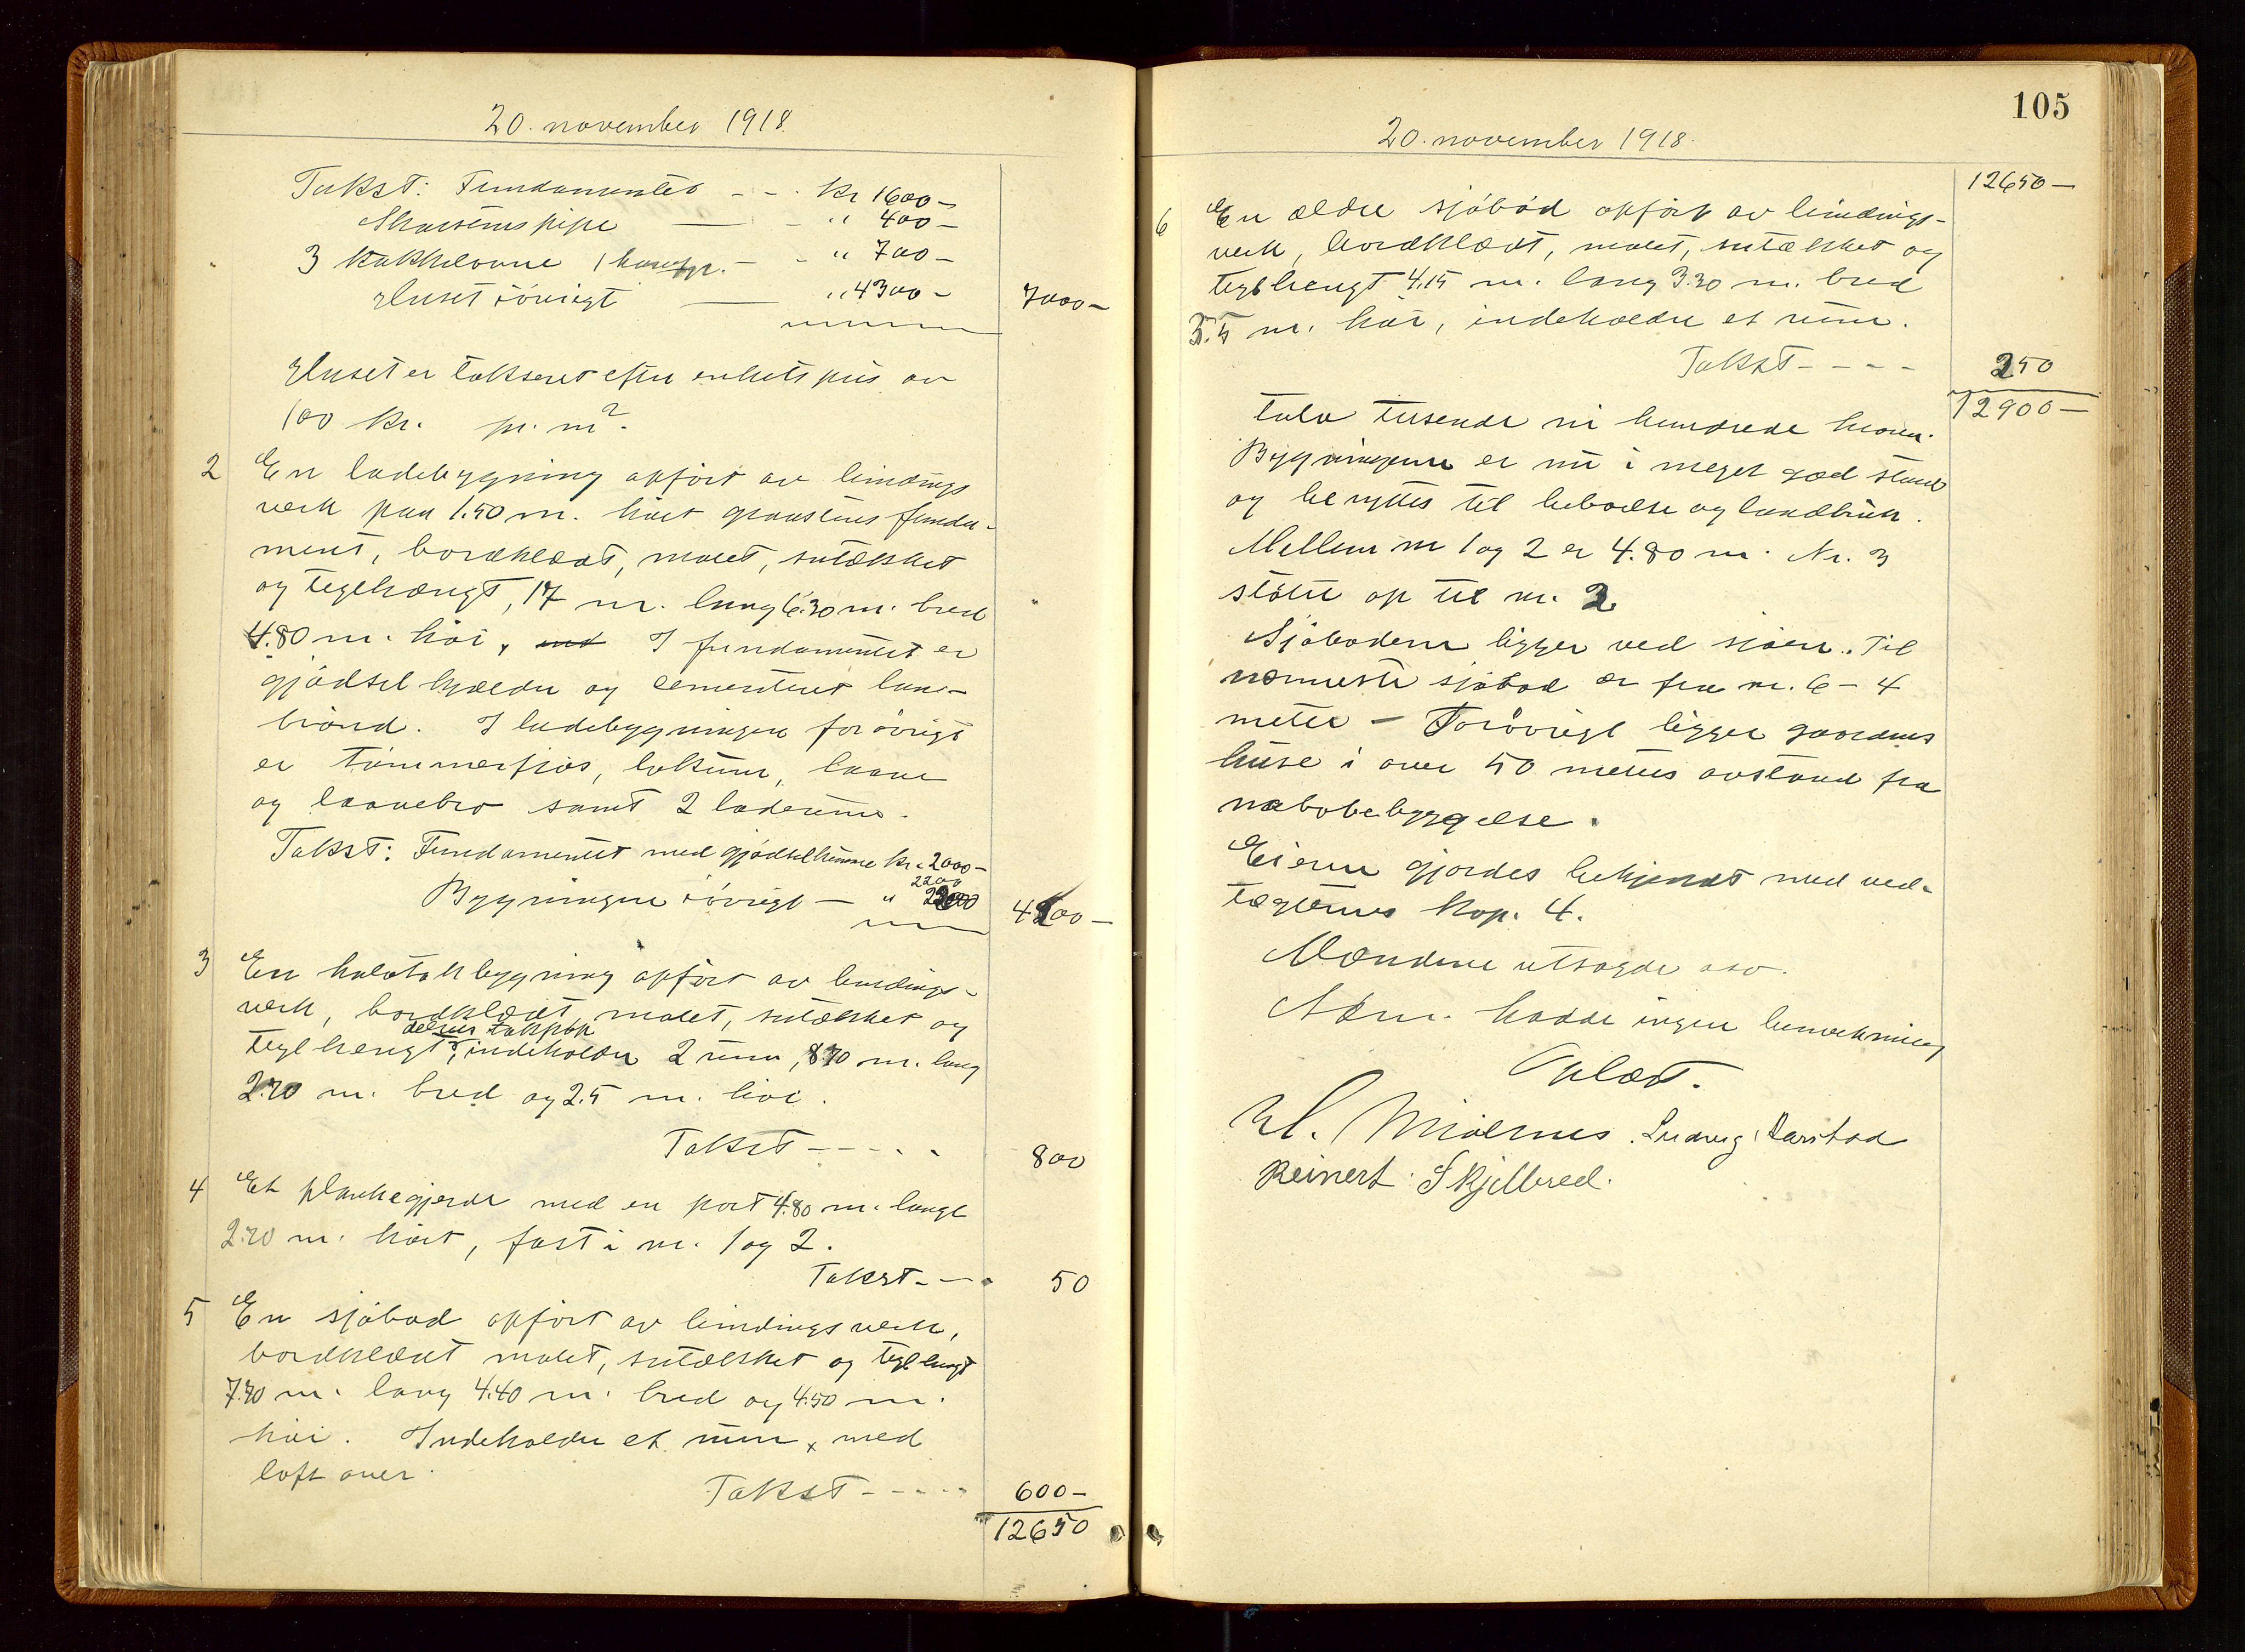 20. november 1918.
Takst: Fundamentet - - . Kr 1600 -
Skorstenspipe — - " 400 -
3 Kakkelovne 1 komfyr. - - " 700 -
Huset iövrigt — " 4300 - 7000 -
Huset er takseret efter enhets pris av
100 Kr. pr. m2.
2 En ladebygning opfört av bindings
verk paa 1.50 m. höit graastens funda-
ment, bordklædt, malet, sutaksket
og teglhængt, 17 m. lang 6.30 m. bred
4.80 m. höi, I fundamentet er
gjödsel kjælder og cementeret lan-
brönd. I ladebygningen forövrigt
er tömmerfjös, lokum, laave
og laavebro samt 2 laderum.
Takst: Fundamentet med gjödselkumme Kr. 2000 -
2200
Bygningen iövrigt — "
4200 -
3 En halvtakbygning opfört av bindings-
verk, bordklædt, malet, sutaksket og
delvis takpap
teglhængt, indeholder 2 rum, 8.70 m. lang
2.70 m. bred og 2.5 m. höi.
Takst - - - - - 800
4 Et plankegjerde med en port 4.80 m. langt
2.20 m. höit, fast i nr. 1 og 2.
Takst - - - 50
5 En sjöbod opfört av bindingsverk,
bordklædt malet, sutaksket og teglhengt
7.70 m. lang 4.40 m. bred og 4.50 m.
höi. Indeholder et rum, med
loft over.
Takst - - - - - 600 -
12650
105
20. november 1918.
12650 -
6 En ældre sjöbod opfört av bindings-
verk, bordklædt, malet, sutaksket og
teglhengt 4.15 m. lang 3.30 m. bred
3.5 m. höi, indeholder et rum.
Takst - - - - 250
12900 -
tolv tusende ni hundrede kroner.
Bygningerne er nu i meget god stand
og benyttes til beboelse og landbruk.
Mellem nr 1 og 2 er 4.80 m. Nr. 3
stöter op til nr. 2
Sjöboden ligger ved sjöen. Til
nærmeste sjöbod er fra nr. 6 - 4
meter - Forövrigt ligger gaardens
huse i over 50 meters avstand fra
nabobebyggelse.
Eieren gjordes bekjendt med ved-
tægternes kap. 4.
Mændene utsagde osv.
Adm. hadde ingen bemerkning
Oplæst.
H. Mjölsnes. Ludvig Aarstad
Reinert Skjelbred.